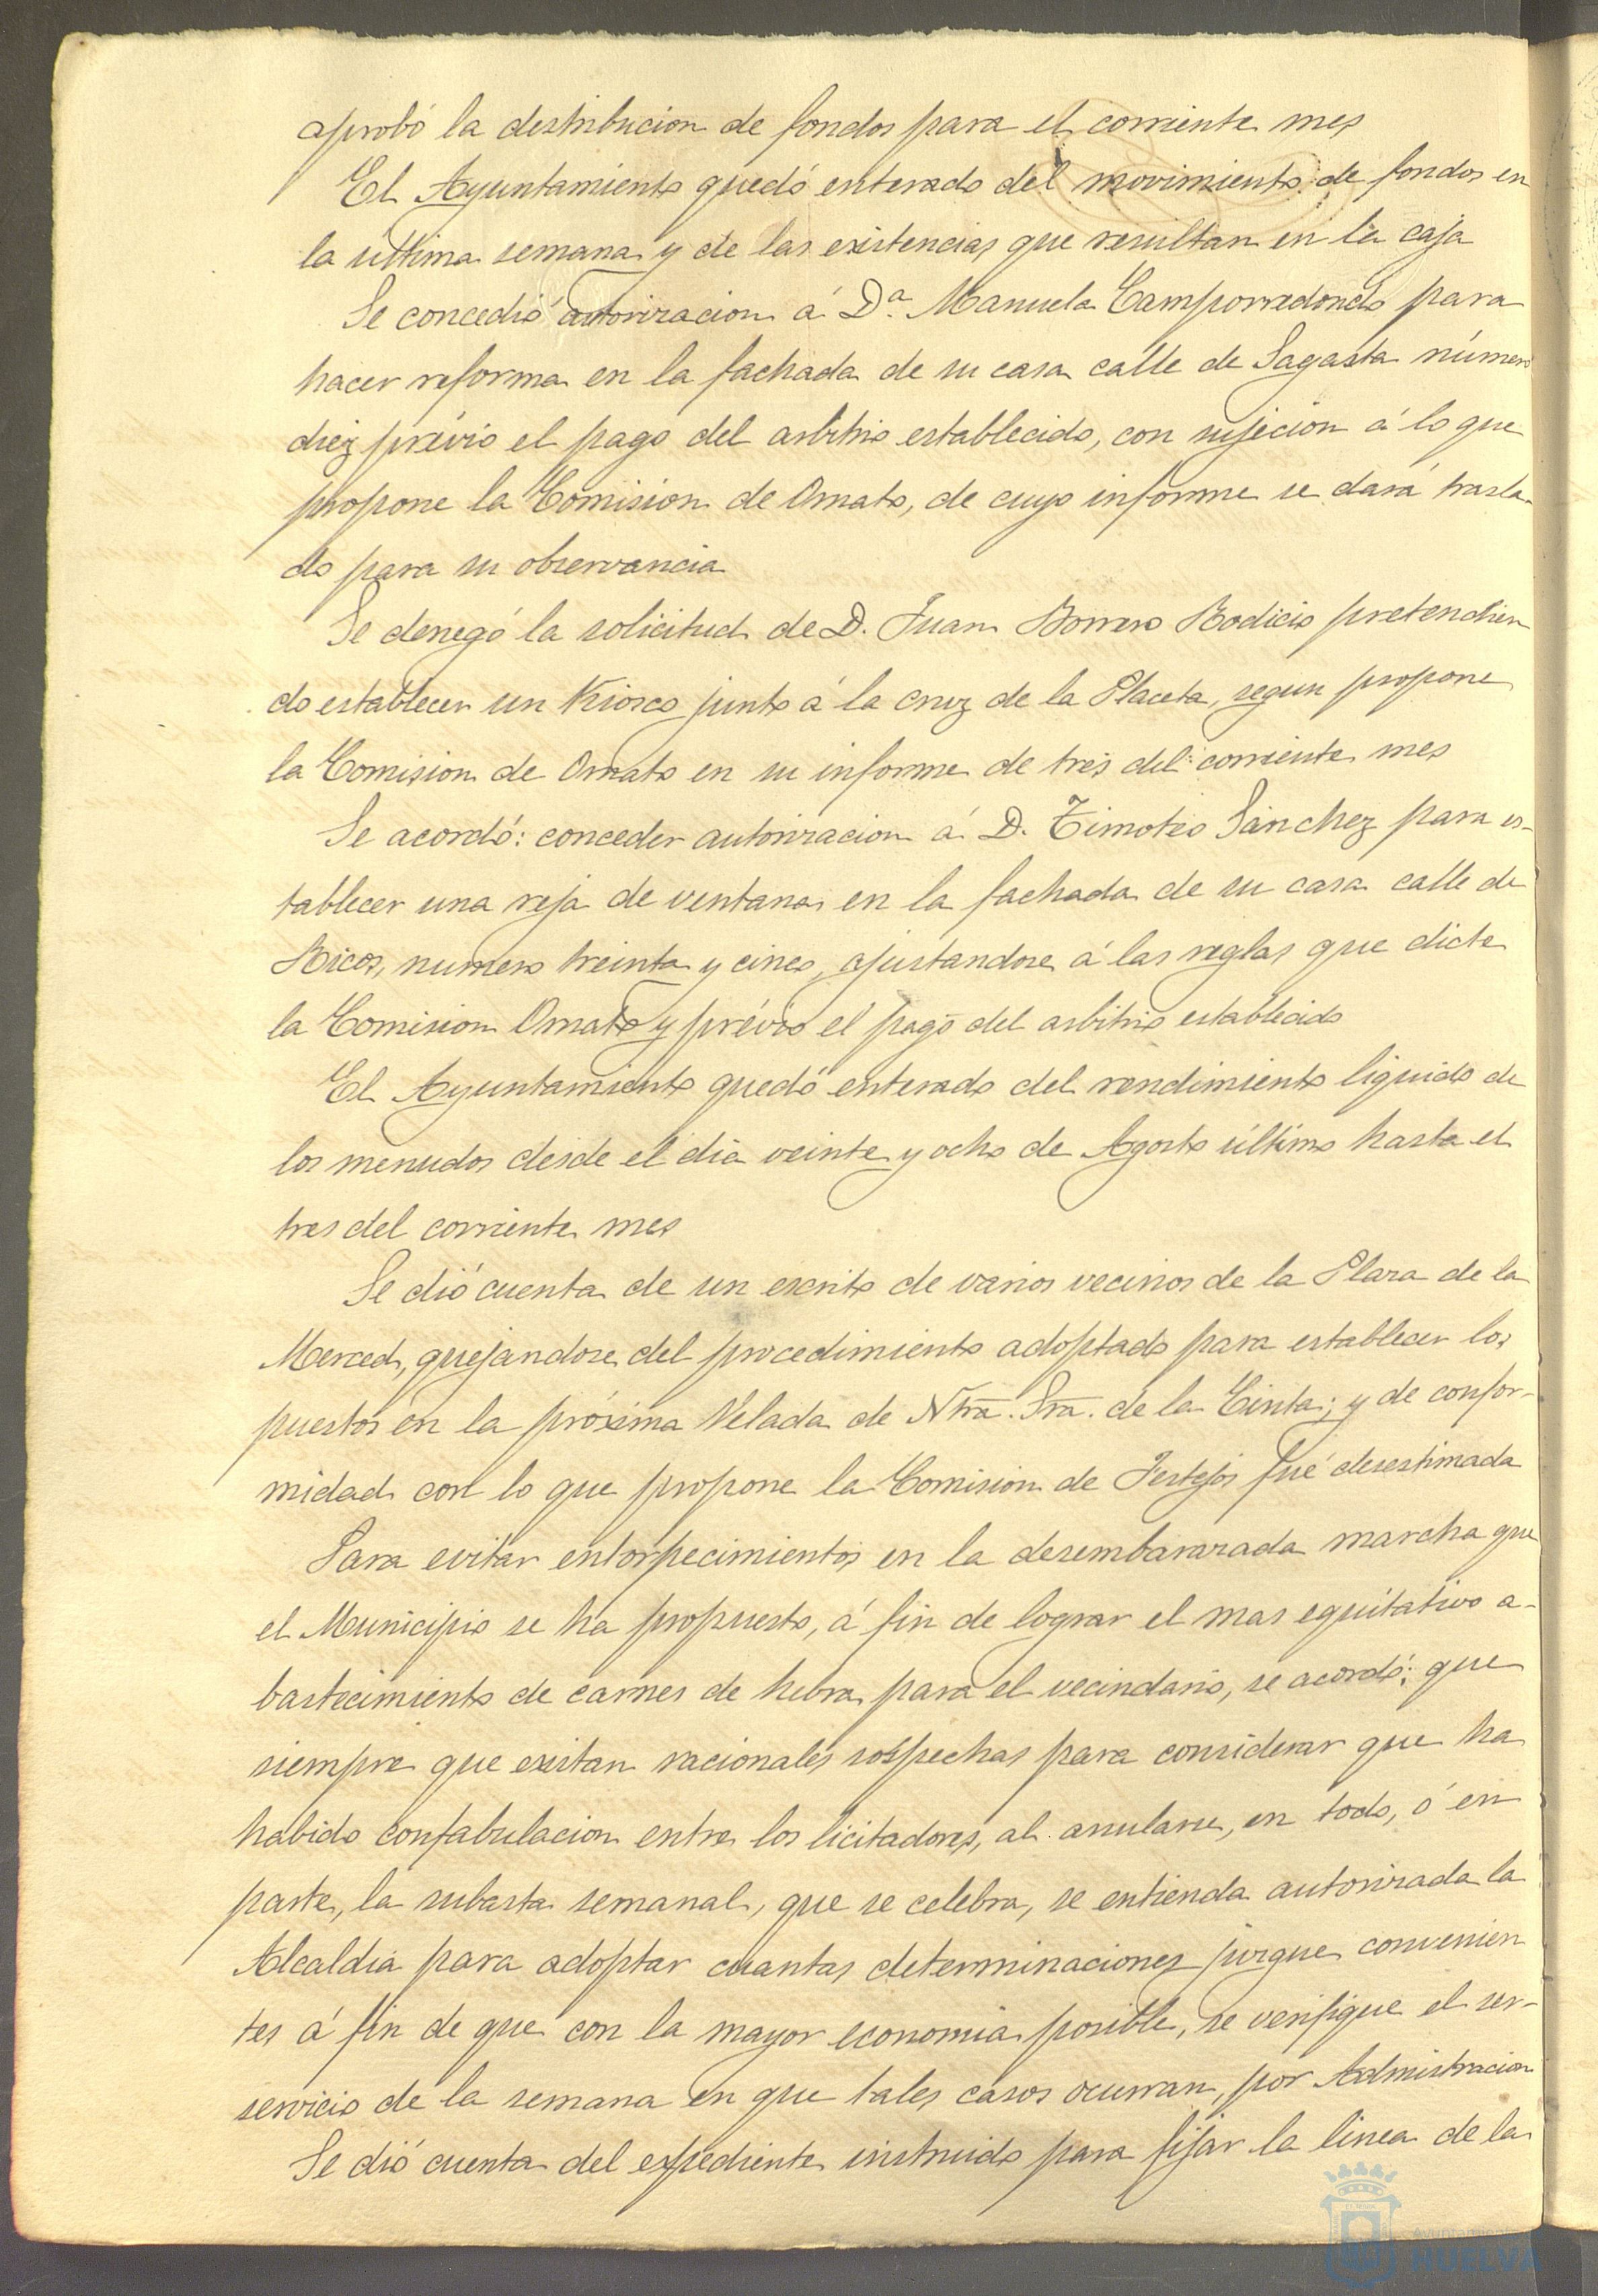 aprobó la destribucion de fondos para el corriente mes
El Ayuntamiento quedó enterado del movimiento de fondos en
la última semana y de las existencias que resultan en la caja
Se concedió autorizacion á D.ª Manuela Camporredondo para
hacer reforma en la fachada de su casa calle de Sagasta número
diez prévio el pago del arbitrio establecido, con sujecion á lo que
propone la Comision de Ornato, de cuyo informe se dará trasla-
do para su observancia
Se denegó la solicitud de D. Juan Borrero Rodicio pretendien
do establecer un Kiosco junto á la cruz de la Placeta, segun propone
la Comision de Ornato en su informe de tres del corriente mes
Se acordó: conceder autorizacion á D. Timoteo Sanchez para es-
tablecer una reja de ventana en la fachada de su casa calle de
Ricos, numero treinta y cinco, ajustandose á las reglas que dicte
la Comision Ornato y prévio el pago del arbitrio establecido
El Ayuntamiento quedó enterado del rendimiento liquido de
los menudos desde el dia veinte y ocho de Agosto último hasta el
tres del corriente mes
Se dió cuenta de un escrito de varios vecinos de la Plaza de la
Merced, quejandose del procedimiento adoptado para establecer los
puestos en la próxima Velada de Ntra. Sra. de la Cinta; y de confor-
midad con lo que propone la Comision de Festejos fué desestimada
Para evitar entorpecimientos en la desembarazada marcha que
el Municipio se ha propuesto, á fin de lograr el mas equitativo a-
bastecimiento de carnes de hebra para el vecindario, se acordó: que
siempre que existan racionales sospechas para considerar que ha
habido confabulacion entre los licitadores, al anularse, en todo, ó en
parte, la subasta semanal, que se celebra, se entienda autorizada la
Alcaldia para adoptar cuantas determinaciones juzgue convenien
tes á fin de que con la mayor economia posible, se verifique el ser-
servicio de la semana en que tales casos ocurran, por Admistracion
Se dió cuenta del expediente instruido para fijar la linea de la
Ayuntamiento
HUELVA